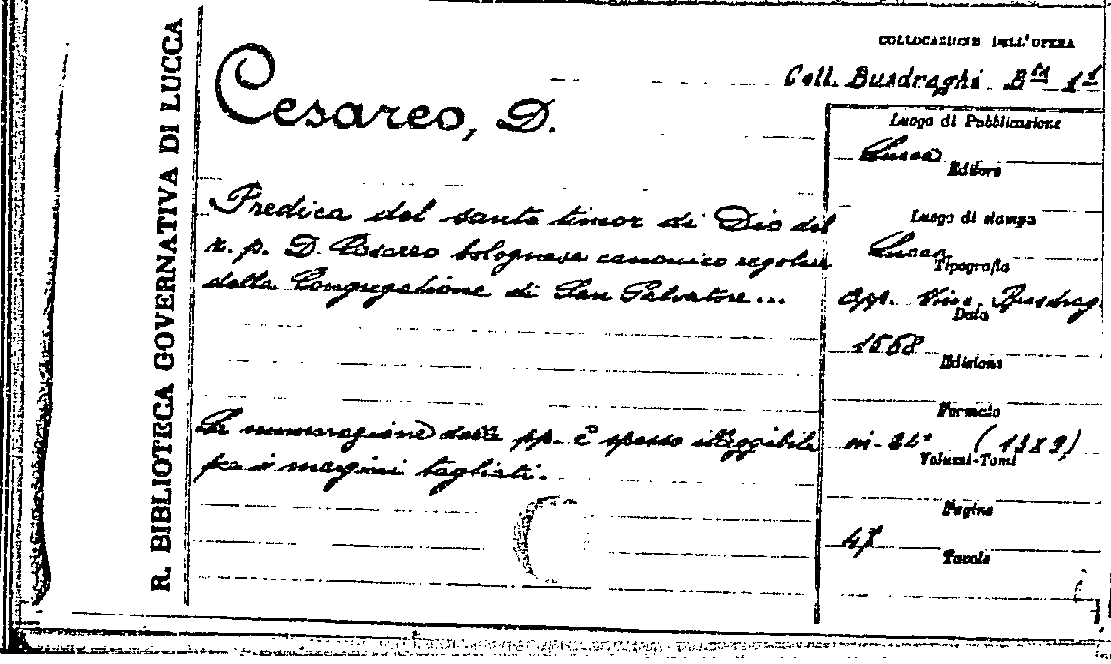 R. BIBLIOTECA GOVERNATIVA DI LUCCA
COLLOCAZIONE DELL'OPERA
Coll. Busdraghi. Bta 11
Cesareo, D.
Predica del santo timor di Dio del
r. p. D. Cesareo bolognese canonico regolare
della Congregatione di San Salvatore...
La numerazione delle pp. è spesso illeggibile
per i margini tagliati.
Luogo di Pubblicazione
Lucca
Editore
Luogo di stampa
Lucca
Tipografia
app. Vinc. Busdrag
Data
1568
Edizione
Formato
in-24° (13x9)
Volumi-Tomi
Pagine
47
Tavole